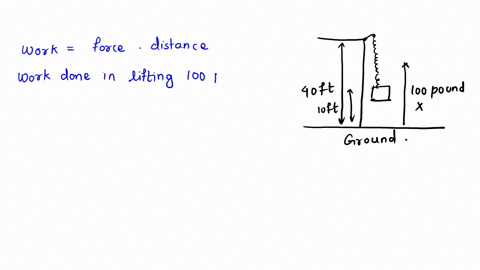 work = force . distance
work done in lifting 100 p
40ft
10ft
100 pound
x
Ground .